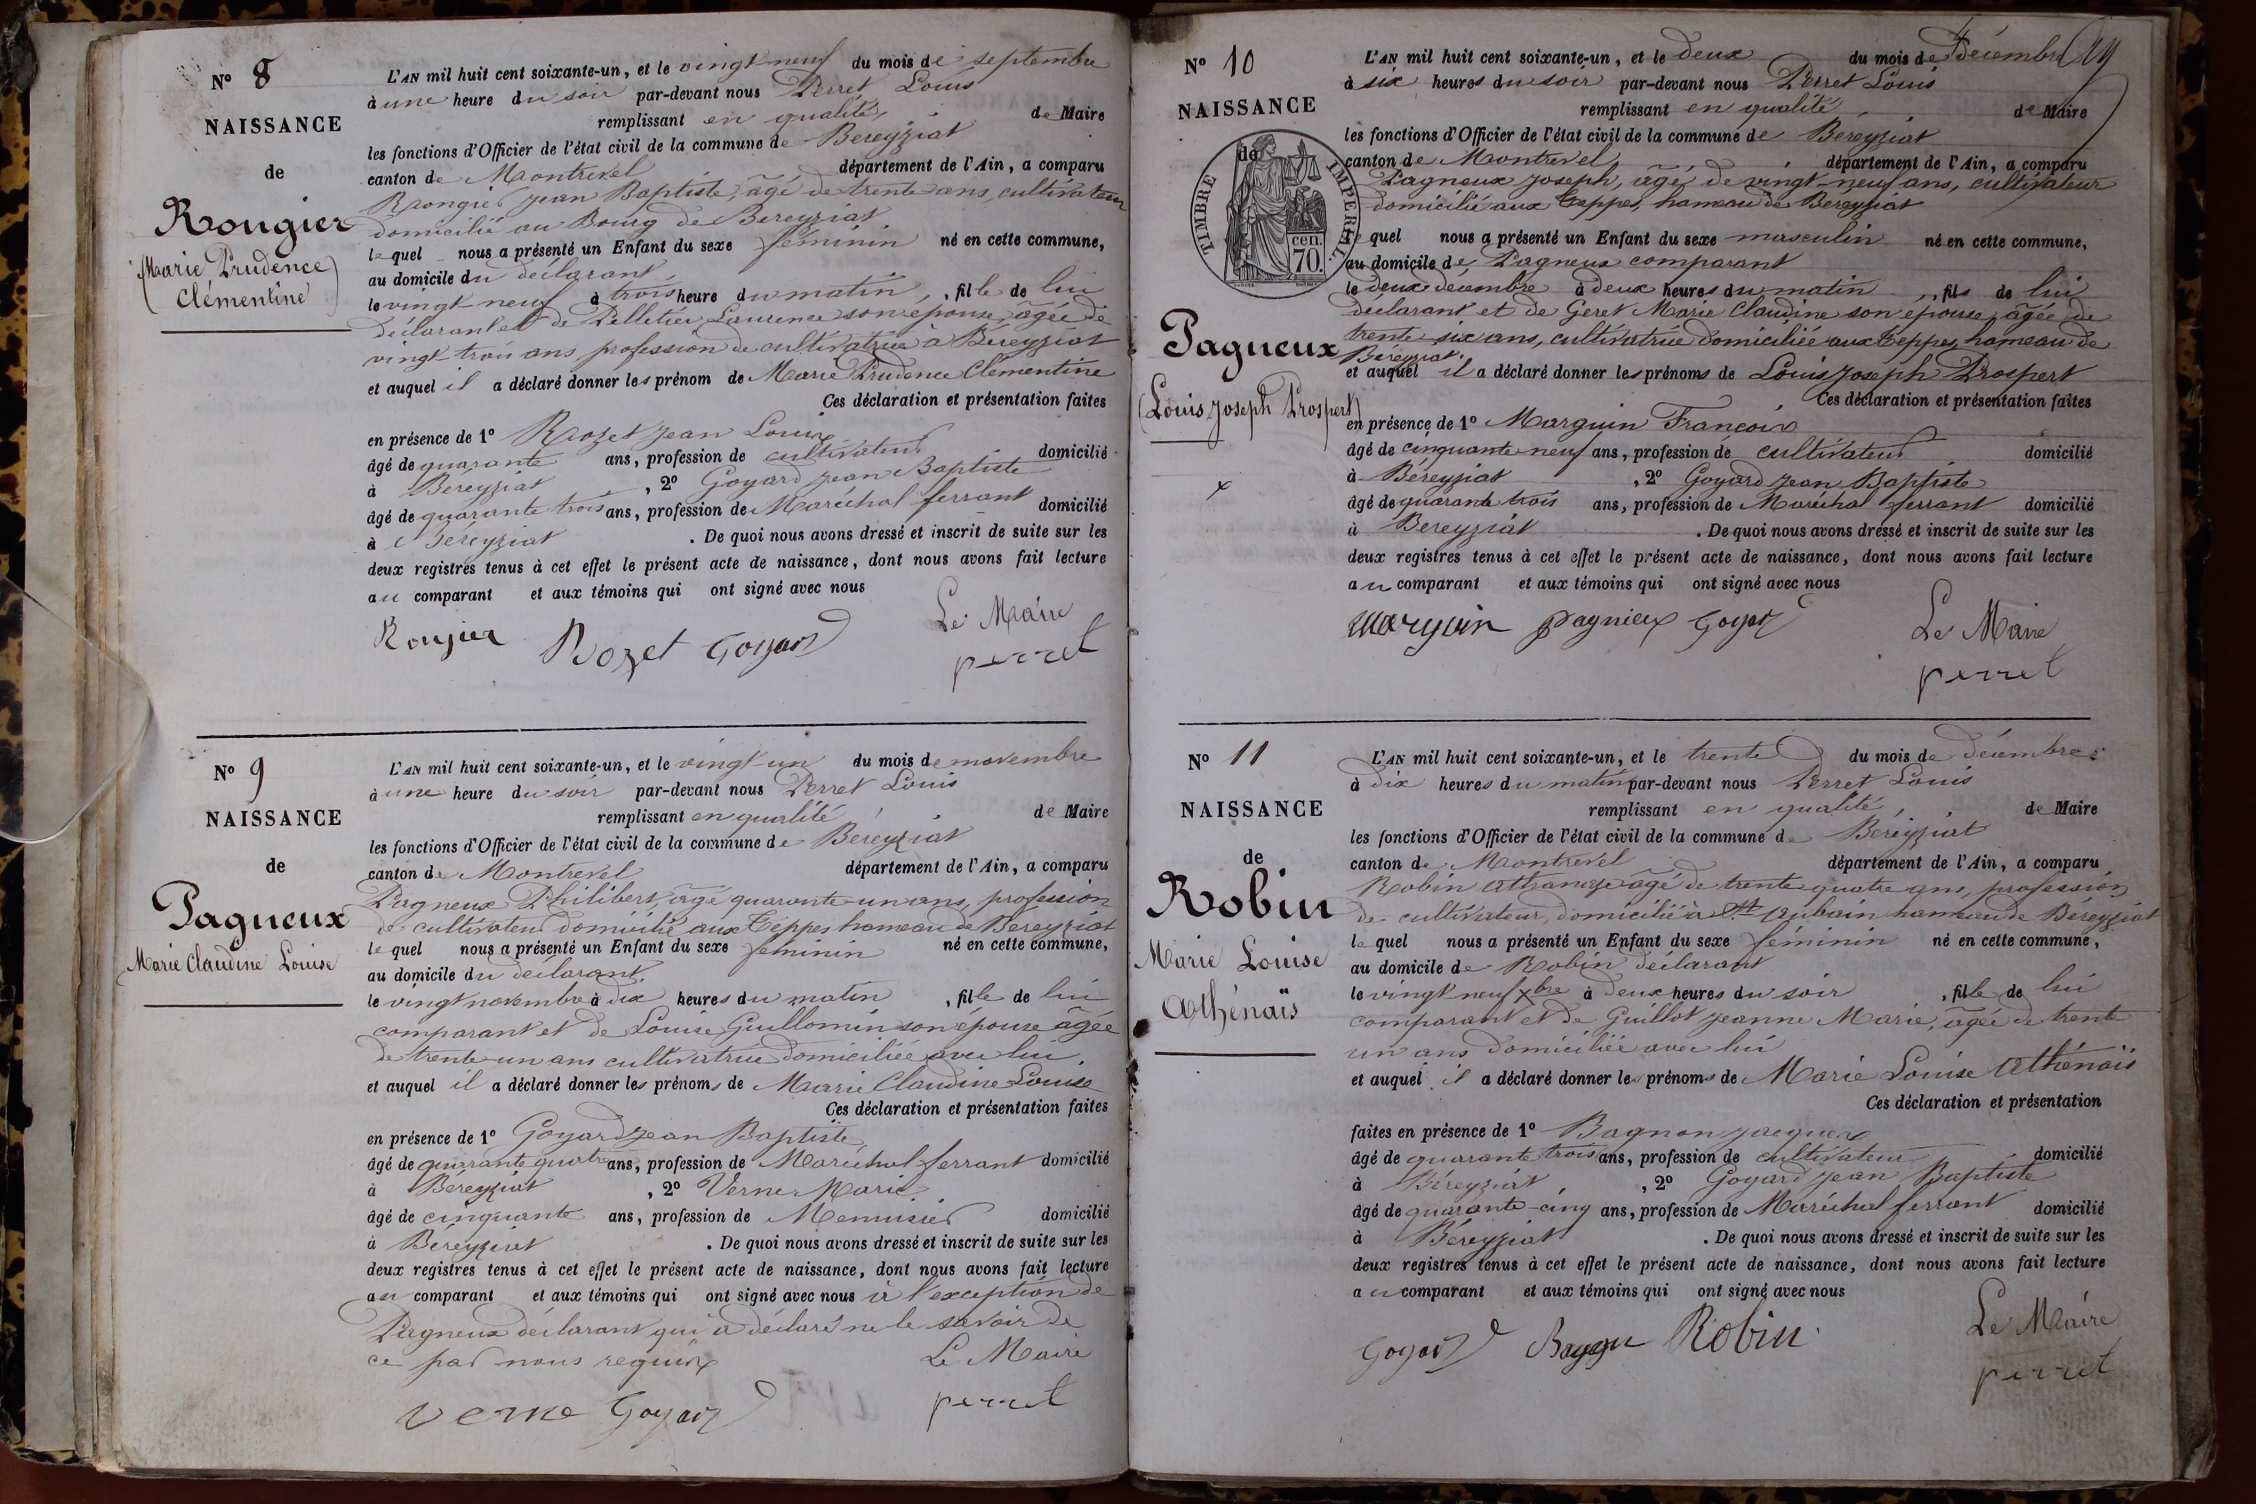 N° 8
NAISSANCE
de
Rongier
(Marie Prudence
Clémentine)
L'AN mil huit cent soixante-un, et le vingt neuf du mois de septembre
à une heure du soir par-devant nous Perret Louis
remplissant en qualité, de Maire
les fonctions d'Officier de l'état civil de la commune de Bereyziat
canton de Montrevel département de l'Ain, a comparu
Rongier Jean Baptiste, âgé de trente ans, cultivateur
domicilié au Bourg de Bereyziat
le quel nous a présenté un Enfant du sexe féminin né en cette commune,
au domicile du déclarant,
le vingt neuf à trois heure du matin, fille de lui
déclarant et de Pelletier Laurence son épouse, âgée de
vingt trois ans profession de cultivatrice à Béreyziat
et auquel il a déclaré donner les prénom de Marie Prudence Clementine
Ces déclaration et présentation faites
en présence de 1° Rozet Jean Louis
âgé de quarante ans, profession de cultivateur domicilié
à Béreyziat, 2° Goyard Jean Baptiste
âgé de quarante trois ans, profession de Maréchal ferrant domicilié
à Béréyziat. De quoi nous avons dressé et inscrit de suite sur les
deux registres tenus à cet effet le présent acte de naissance, dont nous avons fait lecture
au comparant et aux témoins qui ont signé avec nous
Le Maire
Ronjier Rozet Goyard
perret
N° 9
NAISSANCE
de
Pagneux
Marie Claudine Louise
L'AN mil huit cent soixante-un, et le vingt un du mois de novembre
à une heure du soir par-devant nous Perret Louis
remplissant en qualité de Maire
les fonctions d'Officier de l'état civil de la commune de Béreyziat
canton de Montrevel département de l'Ain, a comparu
Pagneux Philibert, âgé quarante un ans, profession
de cultivateur domicilié aux Teppes hameau de Béreyziat
le quel nous a présenté un Enfant du sexe féminin né en cette commune,
au domicile du déclarant
le vingt novembre à dix heures du matin, fille de lui
comparant et de Louise Guillomin son épouse âgée
de trente un ans cultivatrice domiciliée avec lui.
et auquel il a déclaré donner les prénoms de Marie Claudine Louise
Ces déclaration et présentation faites
en présence de 1° Goyard Jean Baptiste
âgé de quarante quatre ans, profession de Maréchal ferrant domicilié
à Bereyziat, 2° Verne Marie
âgé de cinquante ans, profession de Menuisier domicilié
à Béreyziat. De quoi nous avons dressé et inscrit de suite sur les
deux registres tenus à cet effet le présent acte de naissance, dont nous avons fait lecture
au comparant et aux témoins qui ont signé avec nous à l'exception de
Pagneux déclarant qui a déclaré ne le savoir de
ce par nous requis Le Maire
verne Goyard perret
N° 10
NAISSANCE
de
TIMBRE IMPERIAL
70 cen.
Pagneux
(Louis Joseph Prospert)
x
L'AN mil huit cent soixante-un, et le deux du mois de Décembre
à six heures du soir par-devant nous Perret Louis
remplissant en qualité, de Maire
les fonctions d'Officier de l'état civil de la commune de Béreyziat
canton de Montrevel, département de l'Ain, a comparu
Pagneux Joseph, âgé de vingt-neuf ans, cultivateur
domicilié aux Teppes, hameau de Bereyziat
le quel nous a présenté un Enfant du sexe masculin né en cette commune,
au domicile de Pagneux comparant
le deux decembre à deux heures du matin, fils de lui
déclarant et de Geret Marie Claudine son épouse, âgée de
trente-six ans, cultivatrice domiciliée aux Teppes, hameau de
Bereyziat.
et auquel il a déclaré donner les prénoms de Louis Joseph Prospert
Ces déclaration et présentation faites
en présence de 1° Marguin François
âgé de cinquante neuf ans, profession de cultivateur domicilié
à Béreyziat, 2° Goyard Jean Baptiste
âgé de quarante trois ans, profession de Maréchal ferrant domicilié
à Bereyziat. De quoi nous avons dressé et inscrit de suite sur les
deux registres tenus à cet effet le présent acte de naissance, dont nous avons fait lecture
au comparant et aux témoins qui ont signé avec nous
Marguin pagnieux Goyard Le Maire
perret
N° 11
NAISSANCE
de
Robin
Marie Louise
Athénaïs
L'AN mil huit cent soixante-un, et le trente du mois de décembre
à dix heures du matin par-devant nous Perret Louis
remplissant en qualité, de Maire
les fonctions d'Officier de l'état civil de la commune de Béreyziat
canton de Montrevel département de l'Ain, a comparu
Robin Athanaze âgé de trente quatre ans, profession
de cultivateur, domicilié à St Aubain hameau de Béreyziat
le quel nous a présenté un Enfant du sexe féminin né en cette commune,
au domicile de Robin déclarant
le vingt neuf Xbre à deux heures du soir, fille de lui
comparant et de Guillot Jeanne Marie, âgée de trente
un ans domiciliée avec lui
et auquel il a déclaré donner les prénoms de Marie Louise Athénaïs
Ces déclaration et présentation
faites en présence de 1° Bagnon Jacques
âgé de quarante trois ans, profession de cultivateur domicilié
à Béreyziat, 2° Goyard Jean Baptiste
âgé de quarante-cinq ans, profession de Maréchal ferrant domicilié
à Béreyziat. De quoi nous avons dressé et inscrit de suite sur les
deux registres tenus à cet effet le présent acte de naissance, dont nous avons fait lecture
au comparant et aux témoins qui ont signé avec nous
Le Maire
Goyard Robin
perret